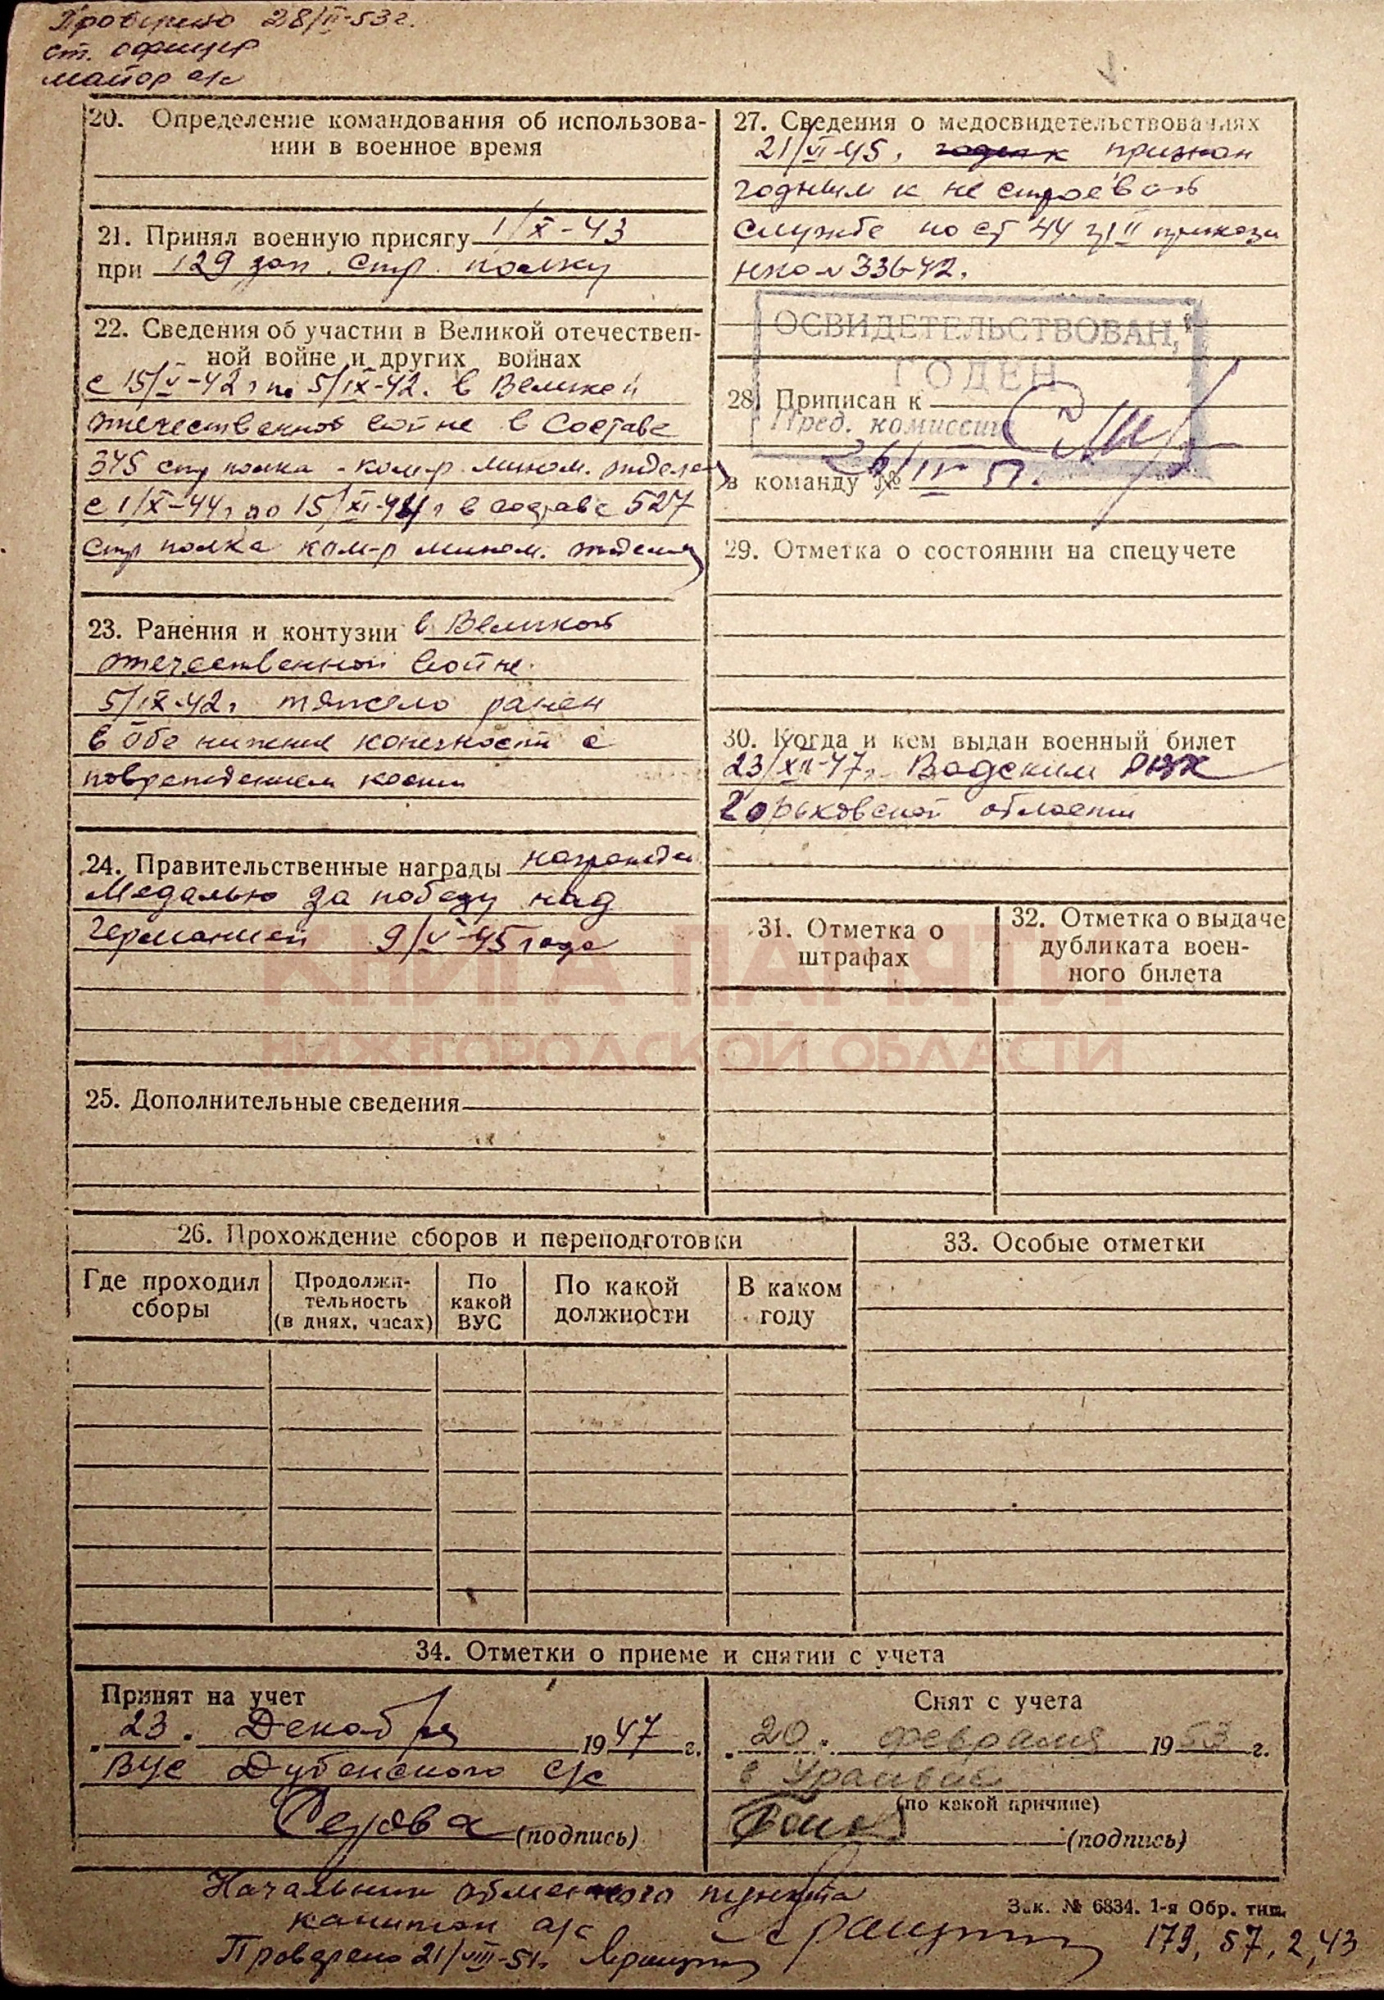 Проверено 28/II-53г.
ст. офицер
майор а/с
20. Определение командования об использова-
нии в военное время
21. Принял военную присягу 1/X-43
при 129 зап. стр. полку
22. Сведения об участии в Великой отечествен-
ной войне и других войнах
с 15/V-42 г по 5/IX-42. в Великой
отечественной войне в составе
345 стр полка - ком-р. мином. отделен
с 1/X-44 г по 15/XI-44 г в составе 527
стр полка ком-р мином. отделен
23. Ранения и контузии в Великой
отечественной войне.
5/IX-42г. тяжело ранен
в обе нижние конечности с
повреждением кости
24. Правительственные награды награжден
Медалью за победу над
германией 9/V-45 года
25. Дополнительные сведения
27. Сведения о медосвидетельствованиях
21/VI-45. годен к признан
годным к не строевой
службе по ст 44 гр II приказа
нко № 336-42.
ОСВИДЕТЕЛЬСТВОВАН,
ГОДЕН
28. Приписан к
Пред. комиссии
26/IV 51.
в команду №
29. Отметка о состоянии на спецучете
30. Когда и кем выдан военный билет
23/XII-47г. Вадским РВК
Горьковской области
31. Отметка о
штрафах
32. Отметка о выдаче
дубликата воен-
ного билета
КНИГА ПАМЯТИ
НИЖЕГОРОДСКОЙ ОБЛАСТИ
26. Прохождение сборов и переподготовки
Где проходил
сборы
Продолжи-
тельность
(в днях, часах)
По
какой
ВУС
По какой
должности
В каком
году
33. Особые отметки
34. Отметки о приеме и снятии с учета
Принят на учет
"23" Декабря 1947 г.
ВУС Дубенского с/с
Серова (подпись)
Снят с учета
"20" февраля 1953 г.
в
(по какой причине)
(подпись)
Начальник обменного пункта
капитан а/с
Проверено 21/VIII-51г.
Зак. № 6834. 1-я Обр. тип.
179, 57, 2, 43